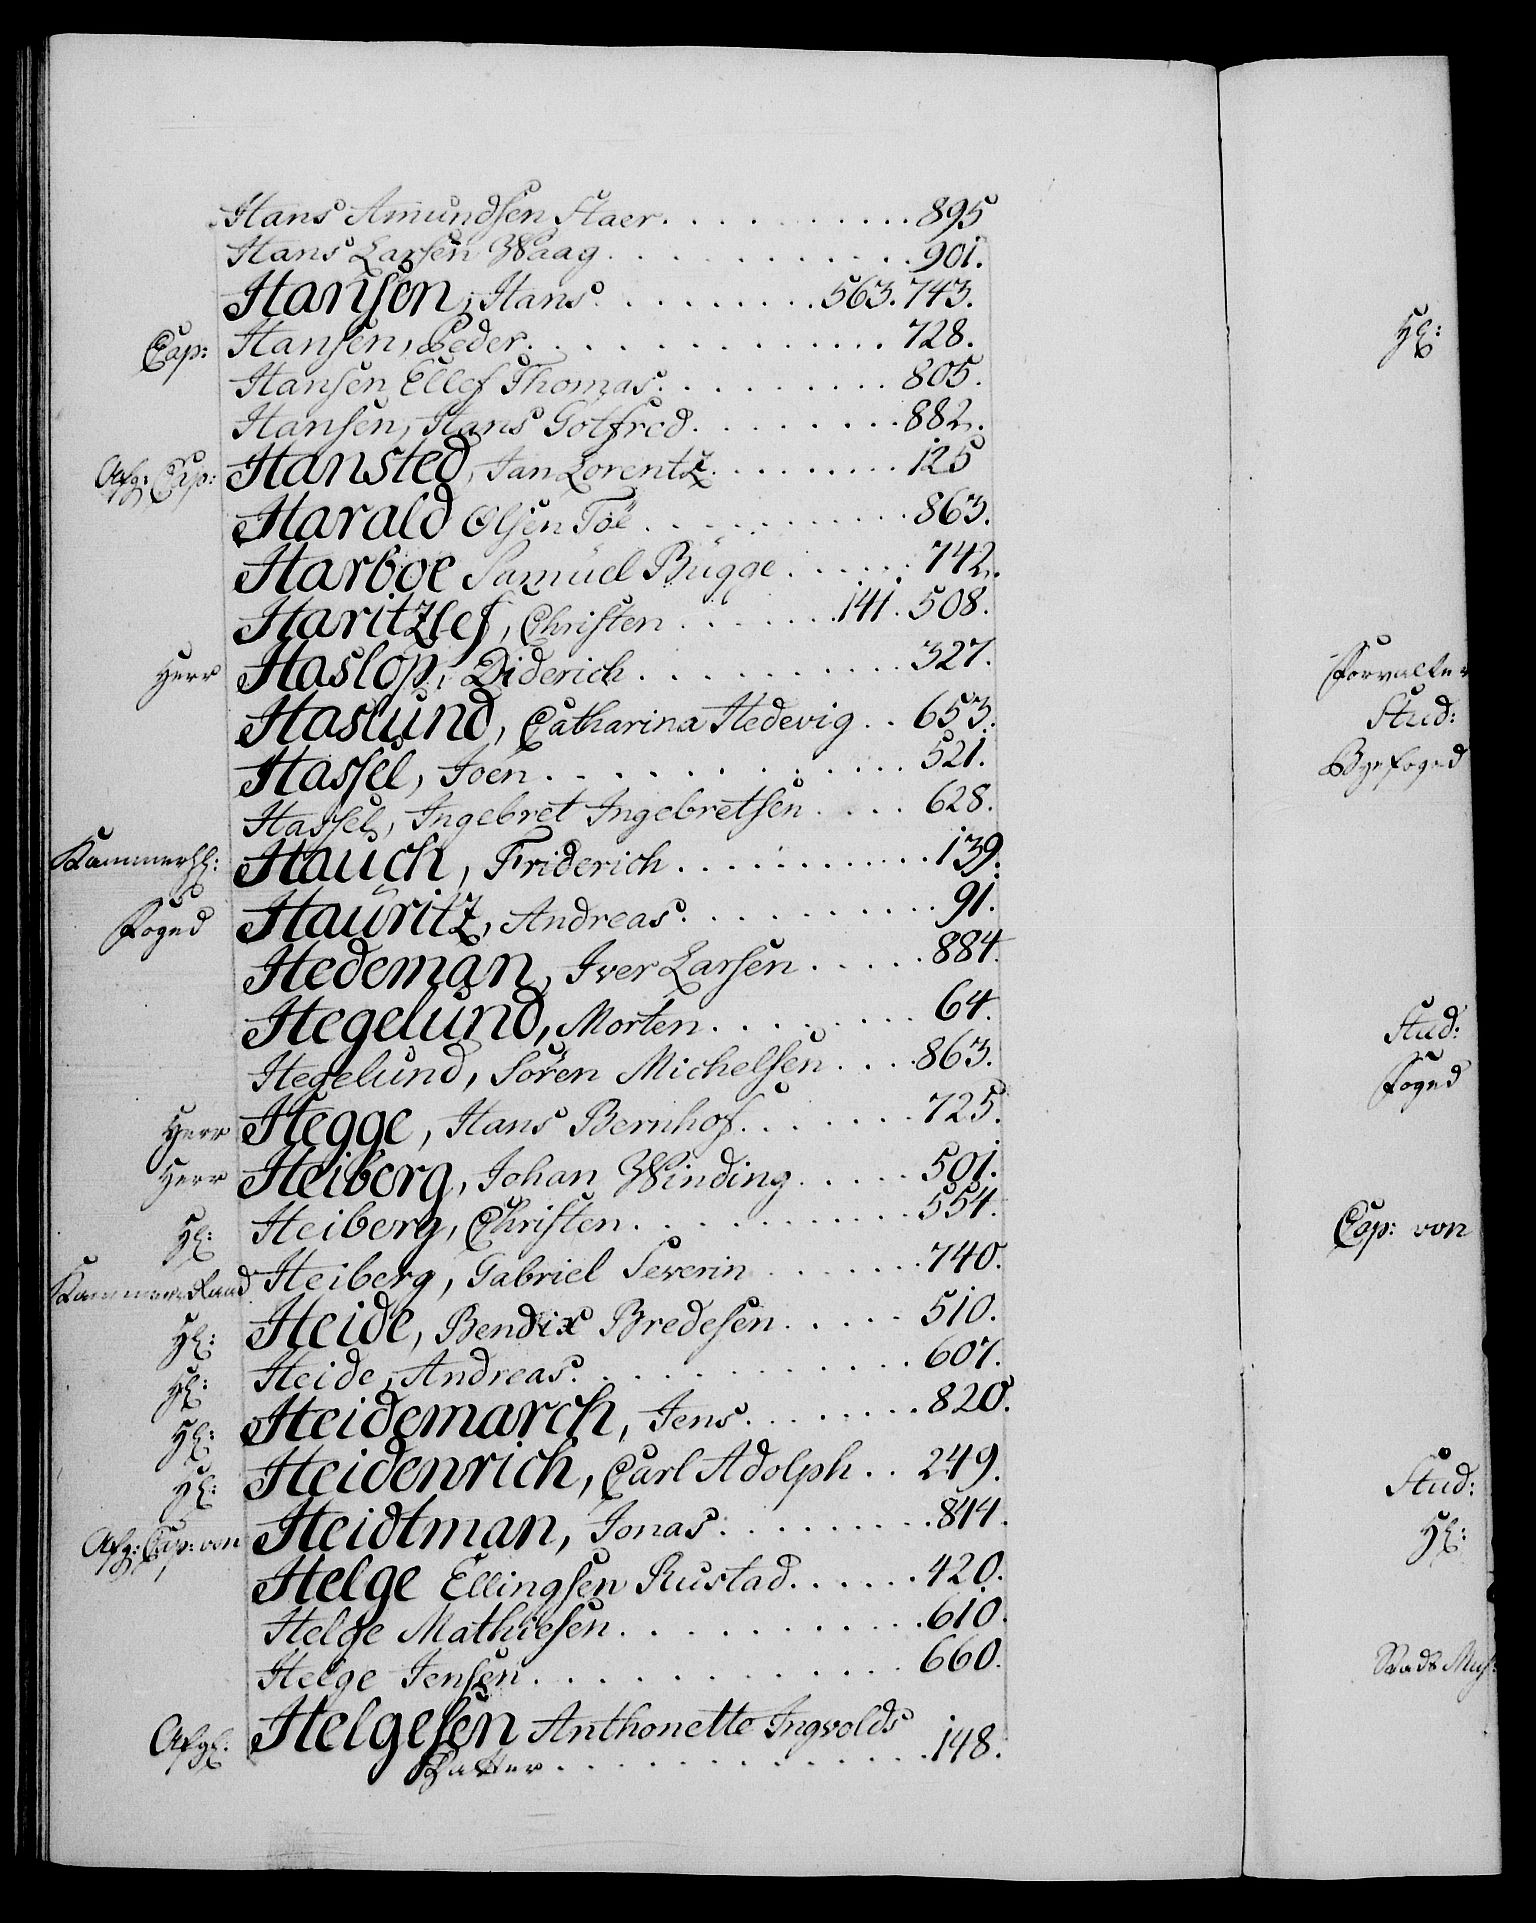 Hans Amundsen Staer . . . . 895
Hans Larsen Waag . . . . 901.
Hansen, Hans . . . . 563. 743.
Cap: Hansen, Peder . . . . 728.
Hansen Ellef Thomas . . . . 805.
Hansen, Hans Gotfred . . . . 882.
Afg: Cap: Hansted, Jan Lorentz . . . . 125
Harald Olsen Töe . . . . 863.
Harboe Samuel Bügge . . . . 742.
Haritzlef, Christen . . . . 141. 508.
Herr Haslop, Diderich . . . . 327.
Haslund, Catharina Hedevig . . 653.
Hassel, Joen . . . . 521.
Hassel, Ingebret Ingebretsen . . . . 628.
Kammerh: Hauch, Friderich . . . . 139.
Foged Hauritz, Andreas . . . . 91.
Hedeman, Iver Larsen . . . . 884.
Hegelund, Morten . . . . 64.
Hegelund, Sören Michelsen . . . . 863.
Herr Hegge, Hans Bernhof . . . . 725.
Herr Heiberg, Johan Winding . . . . 501.
Hl: Heiberg, Christen . . . . 554.
Kammer-Raad Heiberg, Gabriel Severin . . . . 740.
Hl: Heide, Bendix Bredesen . . . . 510.
Hl: Heide, Andreas . . . . 607.
Hl: Heidemarch, Jens . . . . 820.
Hl: Heidenrich, Carl Adolph . . 249.
Afg: Cap: von Heidtman, Jonas . . . . 844.
Helge Ellingsen Rustad . . . . 420.
Helge Mathiesen . . . . 610.
Helge Jensen . . . . 660.
Afgl: Helgesen Anthonette Ingvolds
Datter . . . . 148.
Hl:
Forvalter
Stud:
Byefoged
Stud:
Foged
Cap: von
Stud:
Hl:
Stads Mus: